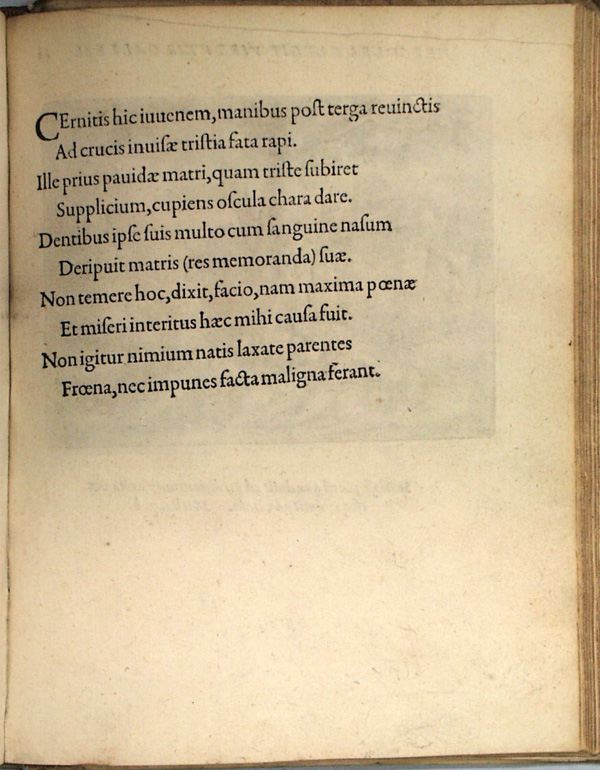 CErnitis hic iuuenem, manibus poſt terga reuinctis
Ad crucis inuiſæ triſtia fata rapi.
Ille prius pauidæ matri, quam triſte ſubiret
Supplicium, cupiens oſcula chara dare.
Dentibus ipſe ſuis multo cum ſanguine naſum
Deripuit matris (res memoranda) ſuæ.
Non temere hoc, dixit, facio, nam maxima pœnæ
Et miſeri interitus hæc mihi cauſa fuit.
Non igitur nimium natis laxate parentes
Frœna, nec impunes facta maligna ferant.